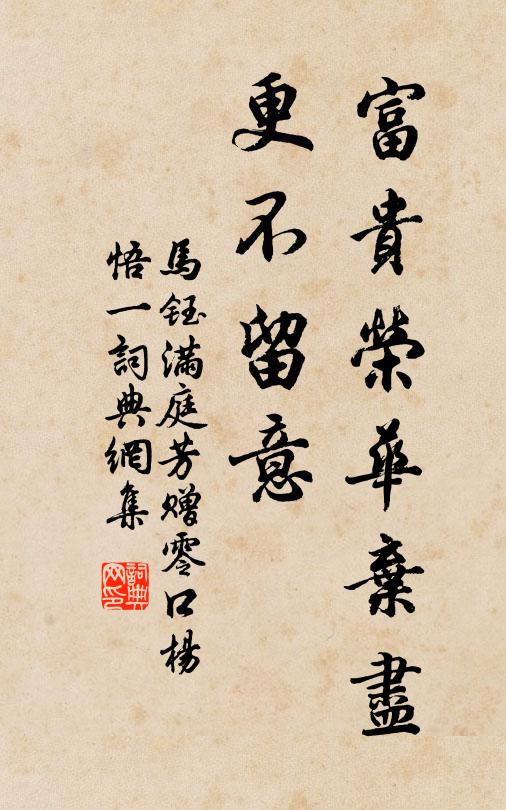 富貴榮華棄盡
更不留意
馬鈺滿庭芳贈零口楊
悟一詞典網集
詞典
网印